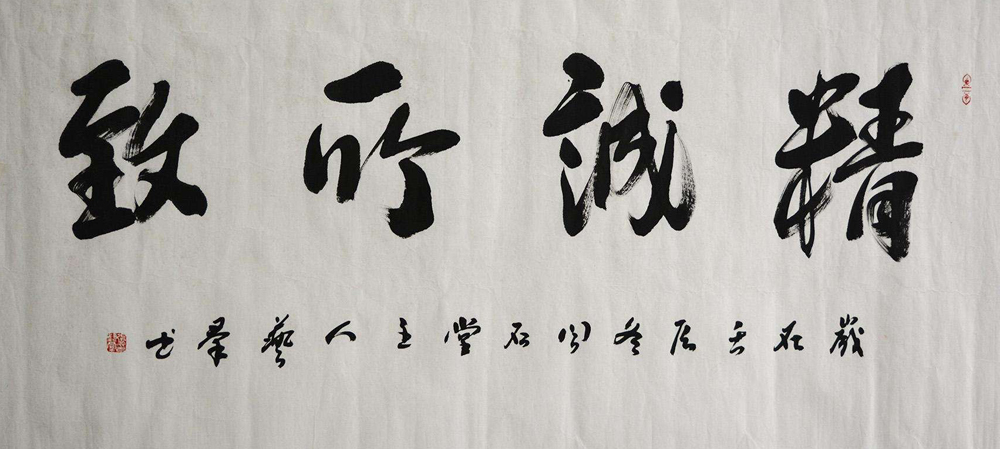 精誠所致
歲在壬辰冬閒石堂主人藝羣书